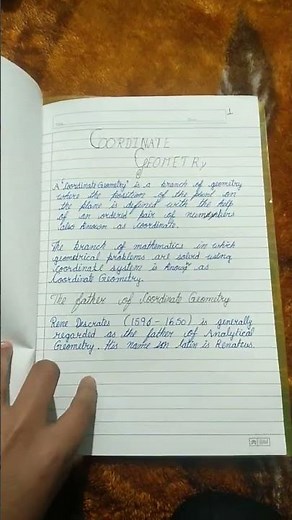 1
COORDINATE
GEOMETRY
A "Coordinate Geometry" is a branch of geometry
where the position of the point on
the plane is defined with the help
of an ordered pair of numbers
also known as coordinate.
The branch of mathematics in which
geometrical problems are solved using
coordinate system is known as
Coordinate Geometry.
The father of Coordinate Geometry
Rene Descrates (1596 - 1650) is generally
regarded as the father of Analytical
Geometry. His name in latin is Renatus.